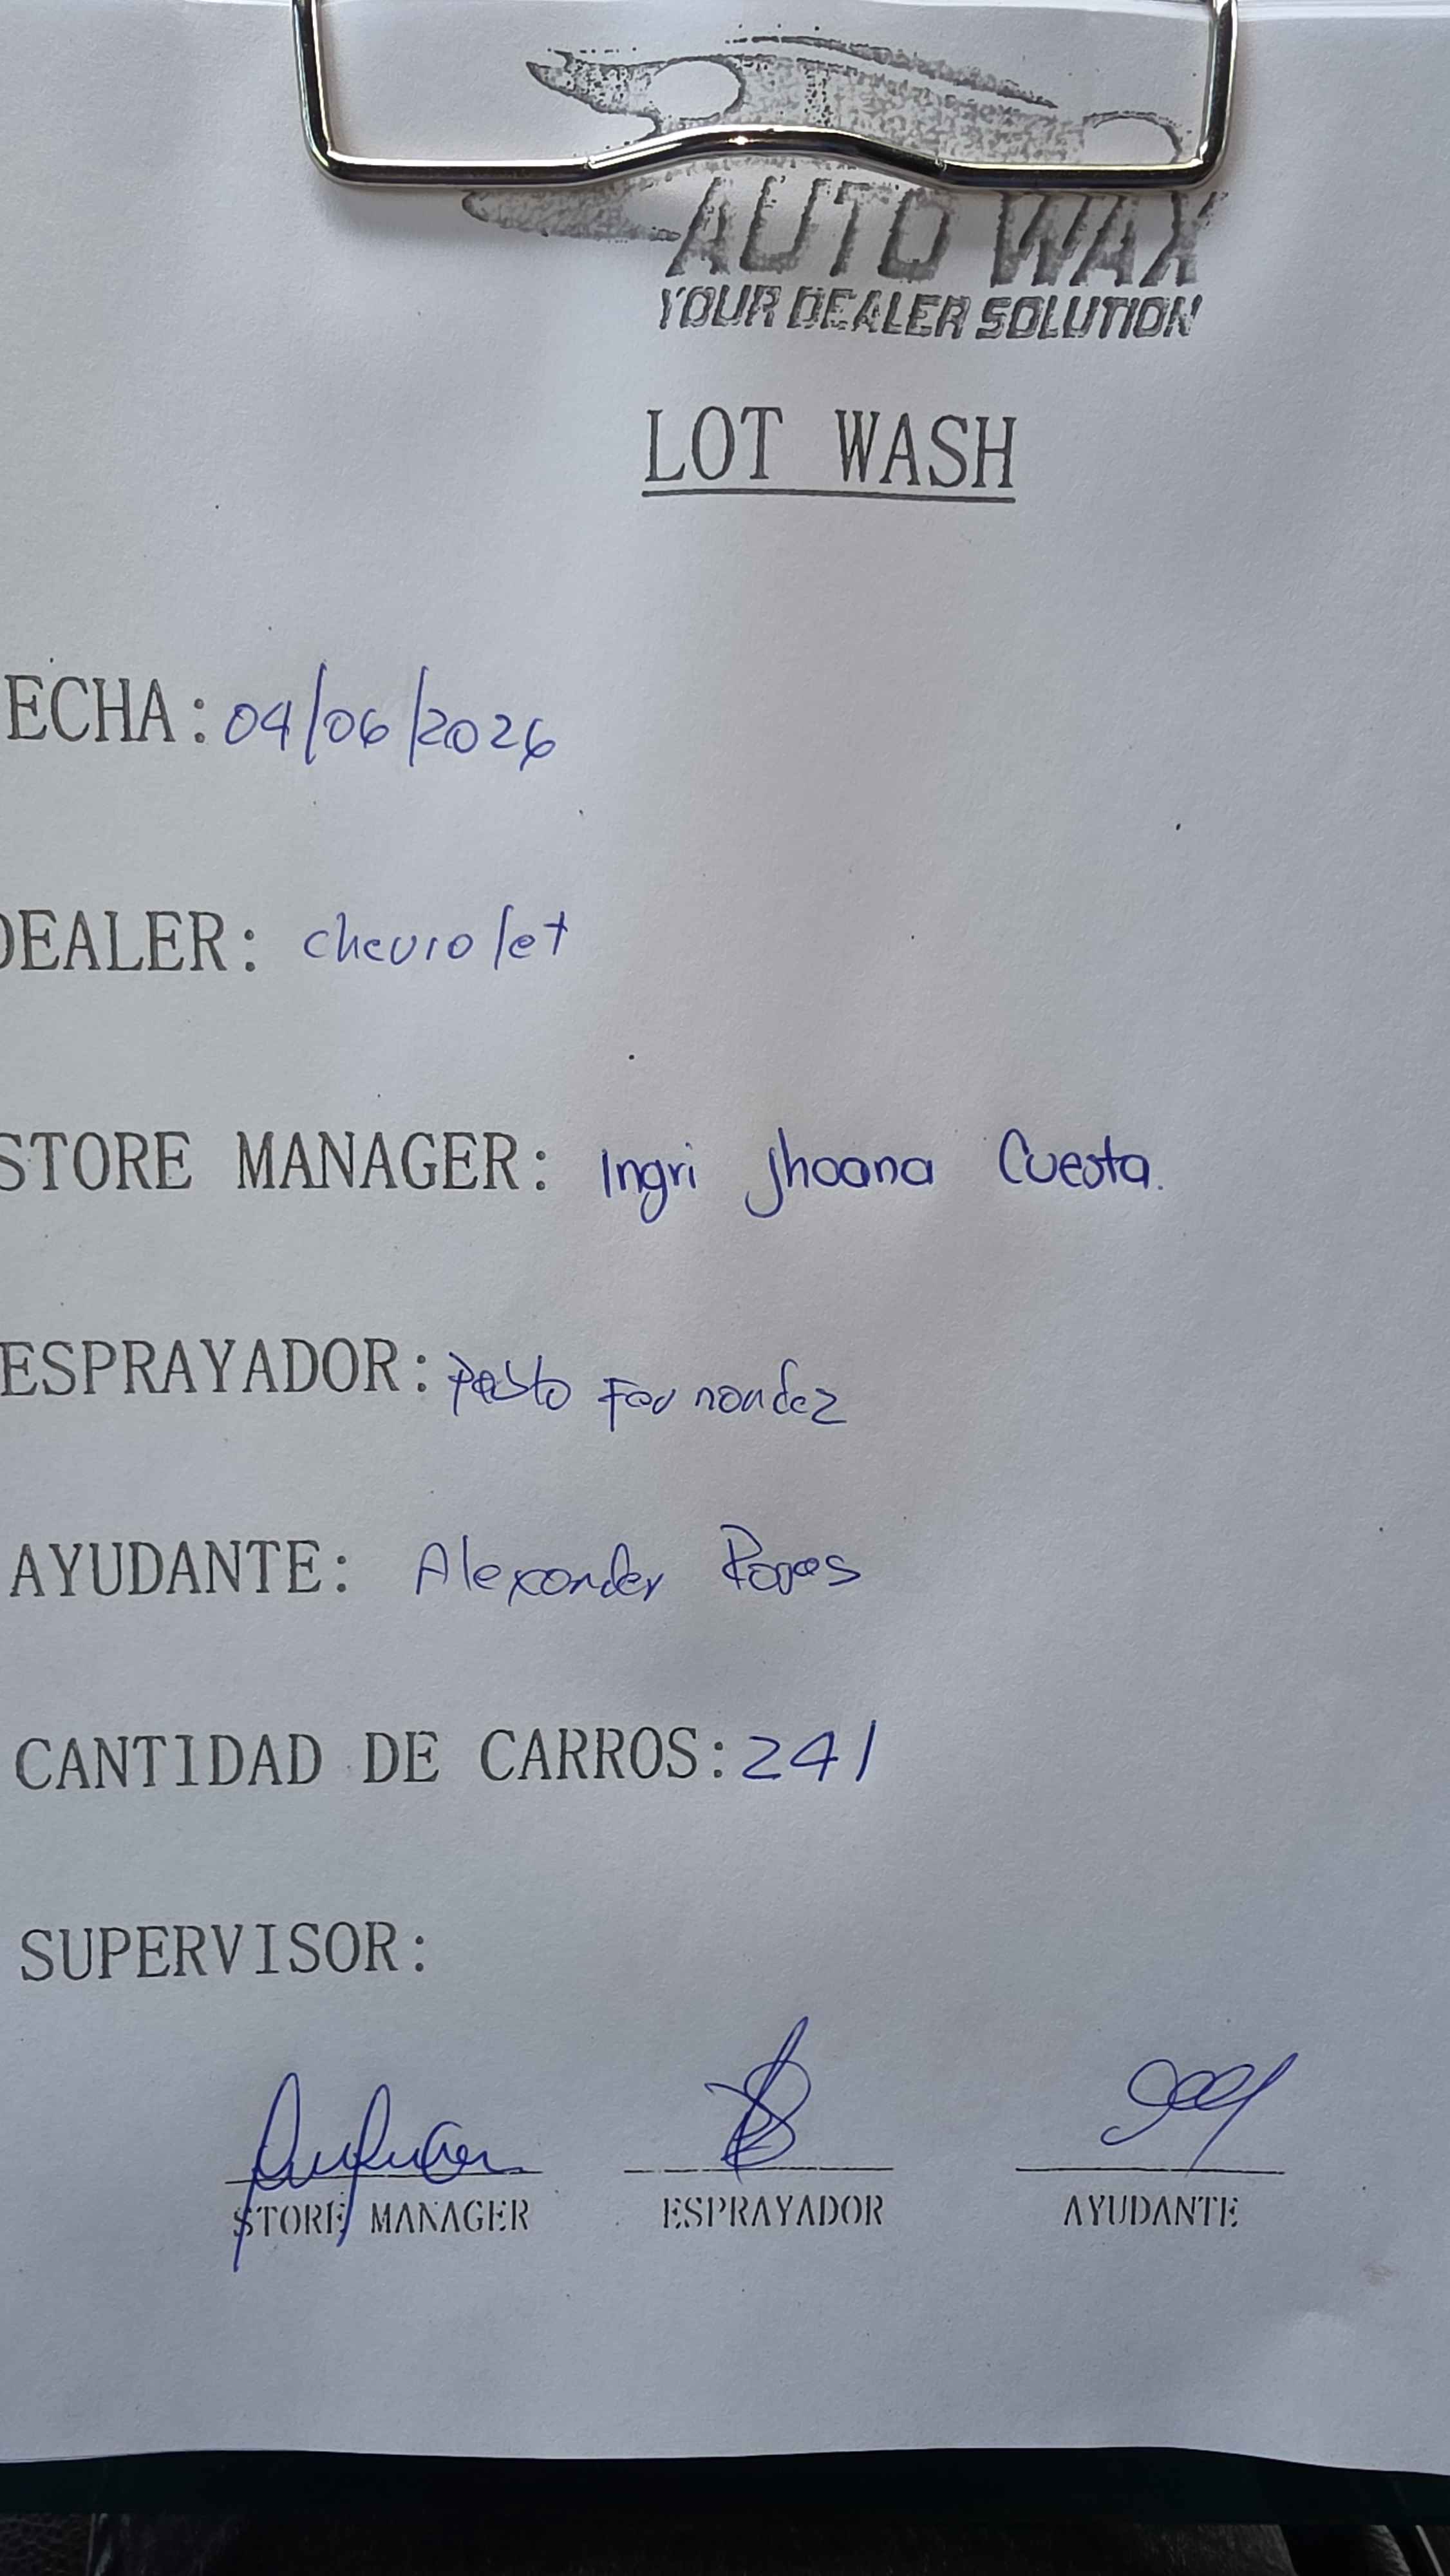 AUTO WAX
YOUR DEALER SOLUTION
LOT WASH
ECHA: 04/06/2026
DEALER: chevrolet
STORE MANAGER: Ingri Jhoana Cuesta.
ESPRAYADOR: Fernandez
AYUDANTE: Alexander
CANTIDAD DE CARROS: 241
SUPERVISOR:
STORE MANAGER ESPRAYADOR AYUDANTE